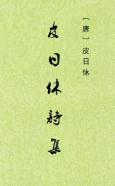 〔唐〕皮日休
皮日休詩集